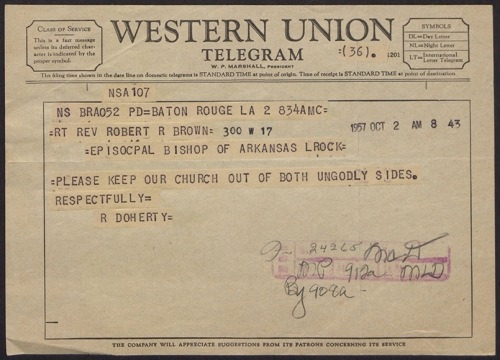 CLASS OF SERVICE
This is a fast message
unless its deferred char-
acter is indicated by the
proper symbol.
WESTERN UNION
TELEGRAM
W. P. MARSHALL, PRESIDENT
=(36).
1201
SYMBOLS
DL=Day Letter
NL=Night Letter
LT=International Letter Telegram
The filing time shown in the date line on domestic telegrams is STANDARD TIME at point of origin. Time of receipt is STANDARD TIME at point of destination
NSA107
NS BRA052 PD=BATON ROUGE LA 2 834AMC=
=RT REV ROBERT R BROWN= 300 W 17
1957 OCT 2 AM 8 43
=EPISOCPAL BISHOP OF ARKANSAS LROCK=
=PLEASE KEEP OUR CHURCH OUT OF BOTH UNGODLY SIDES.
RESPECTFULLY=
R DOHERTY=
24265
912a MLD
By 908a -
THE COMPANY WILL APPRECIATE SUGGESTIONS FROM ITS PATRONS CONCERNING ITS SERVICE